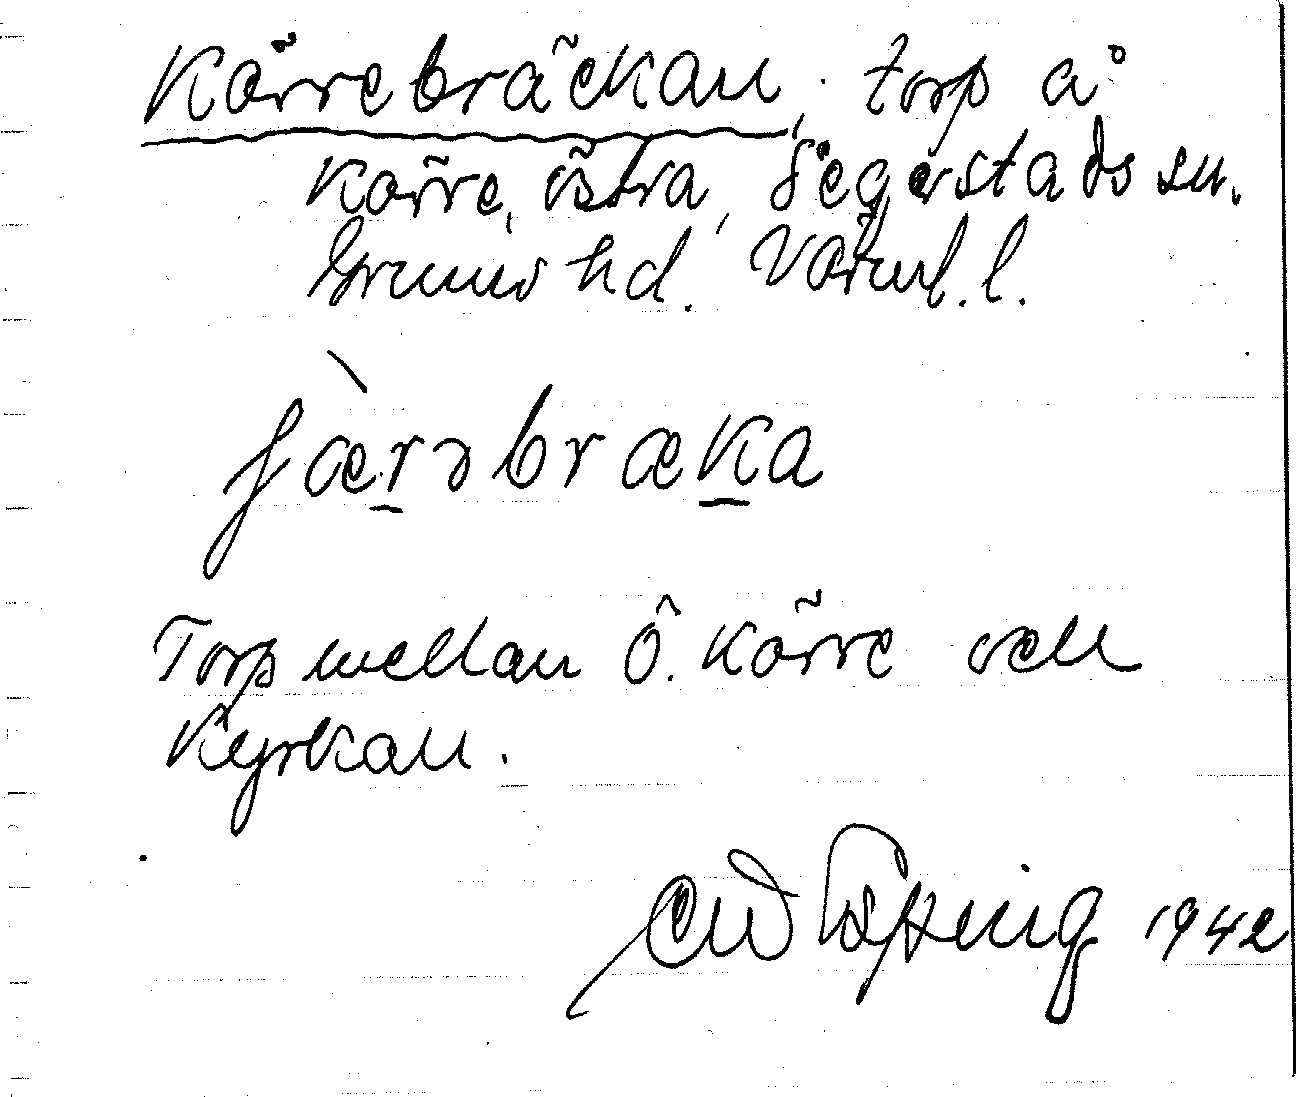 Kärrebräckan, torp å
Kärre, östra, Segerstads sn.
Grums hd. Värml. l.
fær̠əbræk̠a
Torp mellan Ö. Kärre och
Kyrkan.
1942